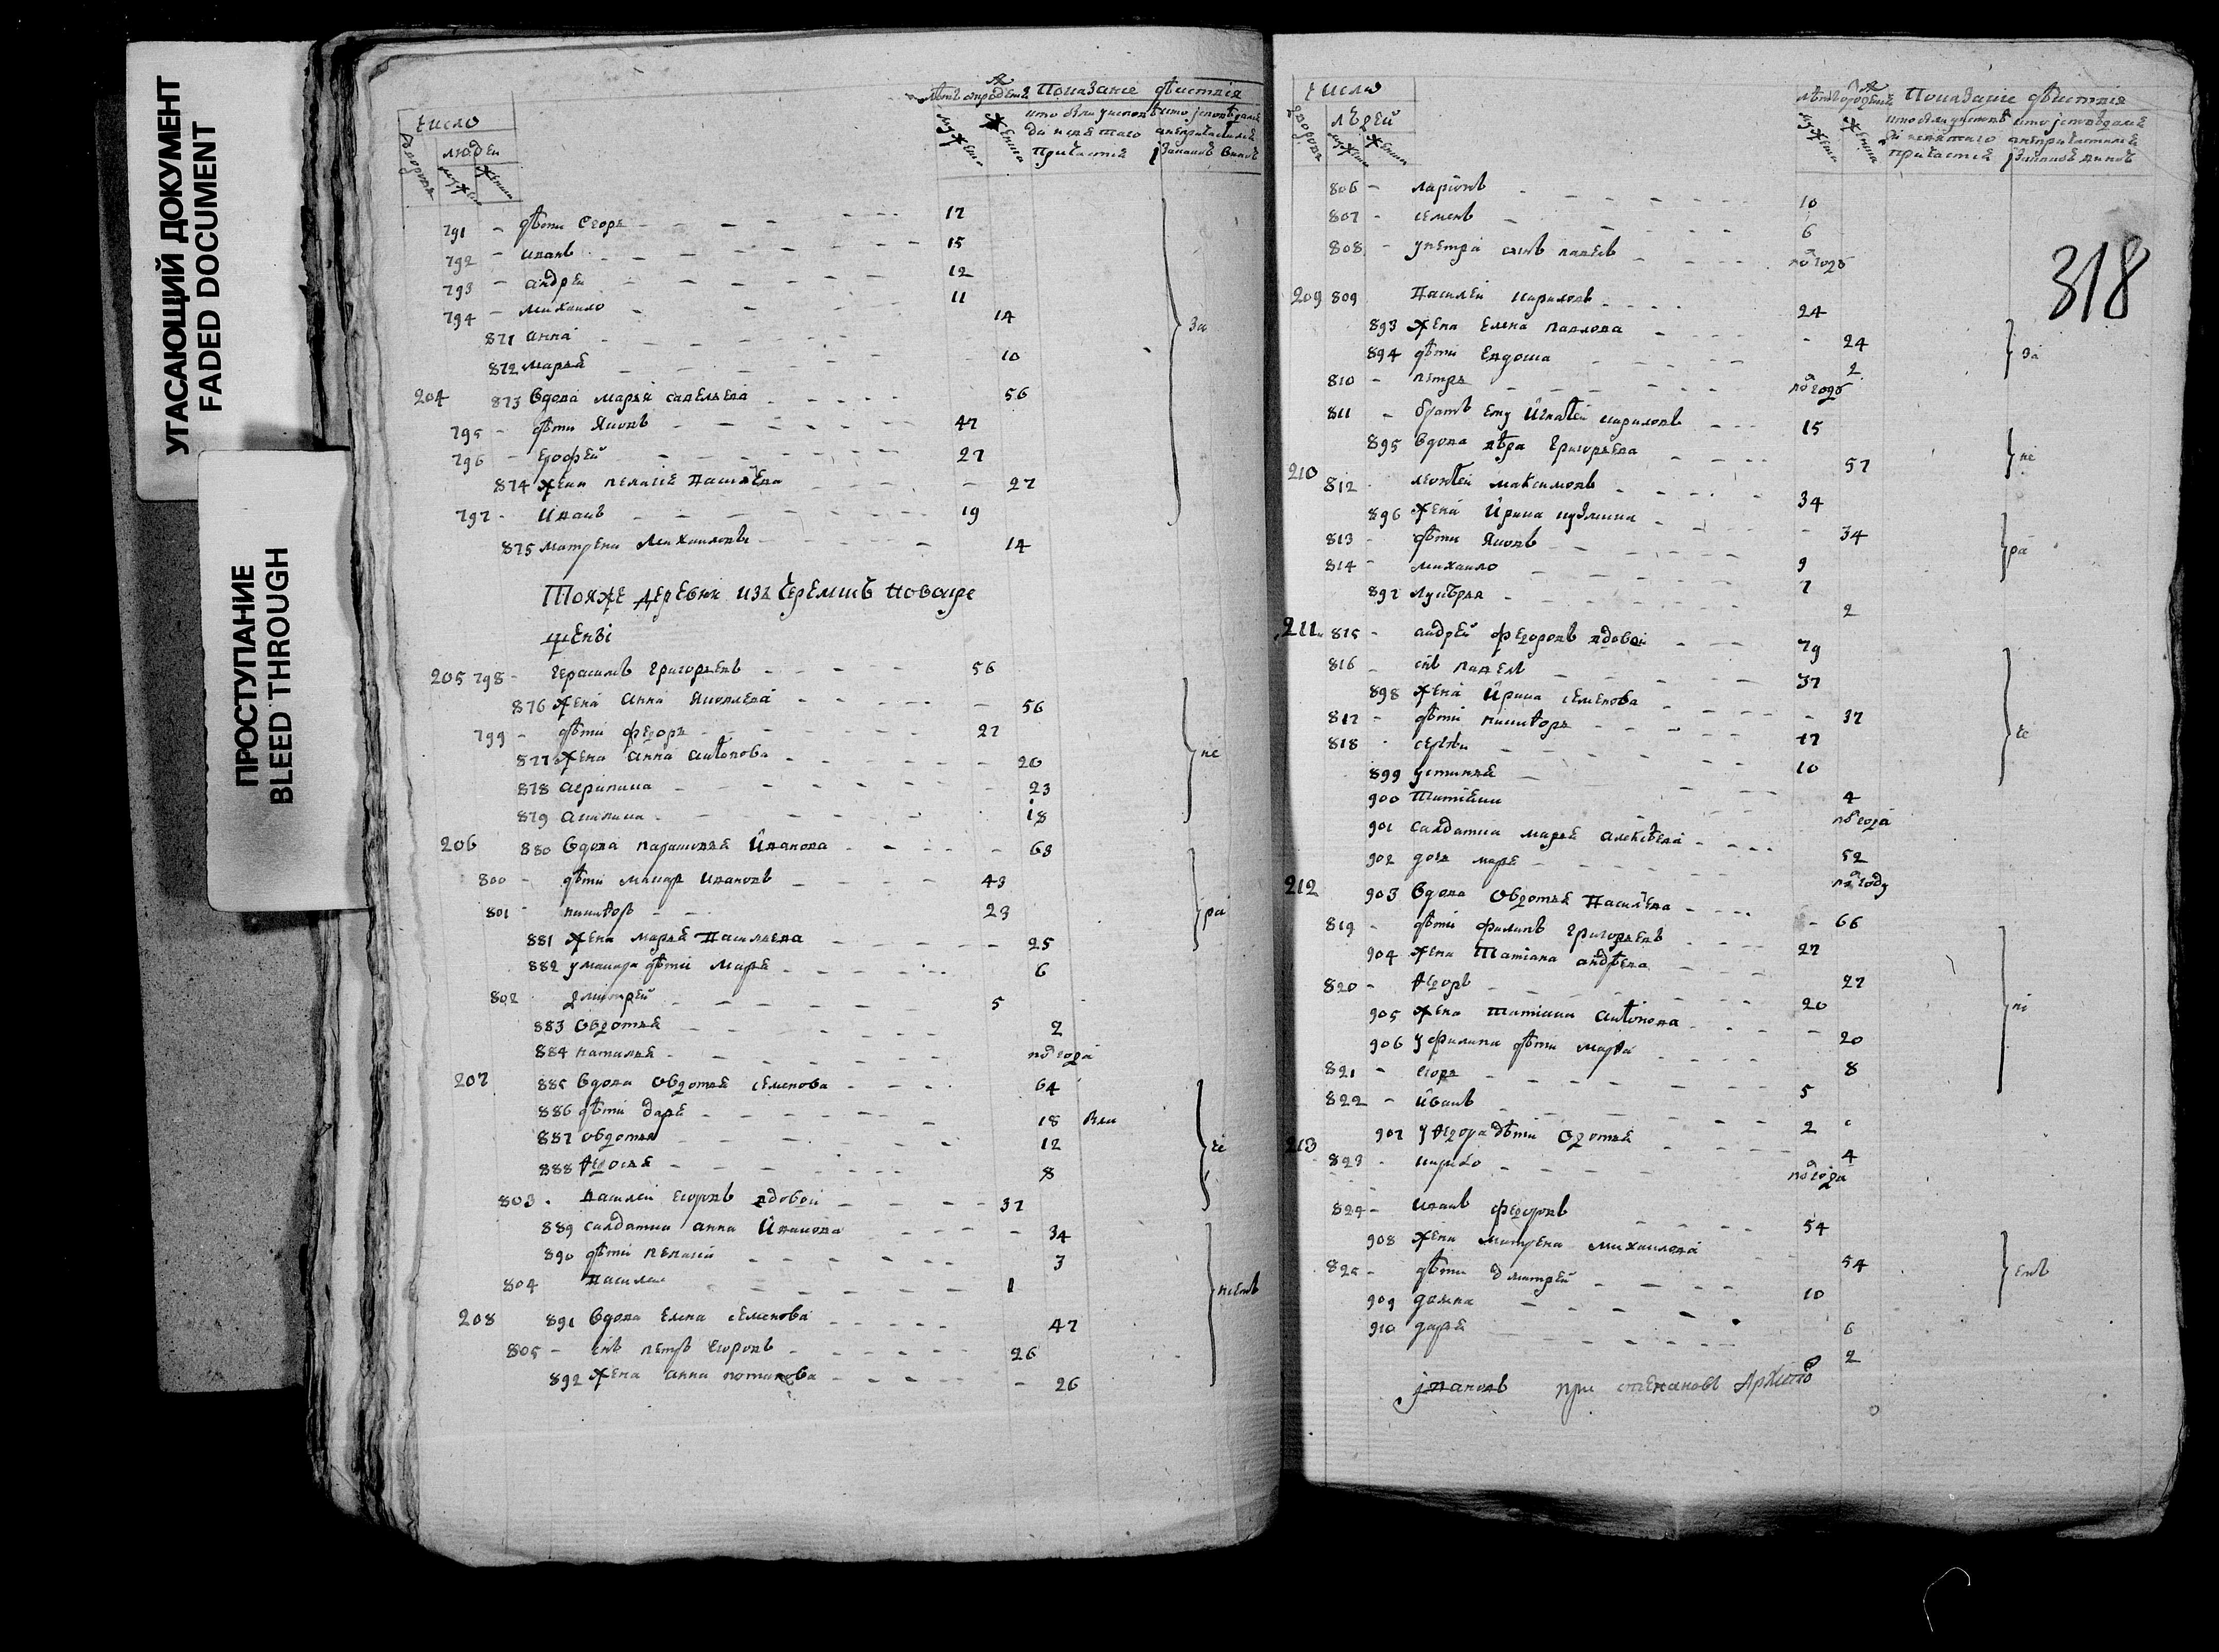 УГАСАЮЩИЙ ДОКУМЕНТ
FADED DOCUMENT
ПРОСТУПАНИЕ
BLEED THROUGH
число
людей
мужеска
женска
Показание действия
791 - дѣти Егоръ 17
792 - иванъ 15
793 - андрей 12
794 - михаило 11
871 анна 14
872 марья 10
204 873 вдова марья савельева 56
795 - дѣти Яковъ 47
796 - Ерофей 27
874 жена пелагея василева 27
797 - Иванъ 19
875 матрена михаилова 14
Тояже деревни изъ черемисъ новокре
щены
205 798 - герасимъ григорьевъ 56
876 жена анна Яковлева 56
799 - дѣти федоръ 27
877 жена анна антонова 20
878 агрипина 23
879 акилина 18
206 880 вдова парасковья Иванова 63
800 - дѣти макар ивановъ 43
801 - никифоръ 23
881 жена марья василева 25
882 у макара дѣти марья 6
802 дмитрей 5
883 овдотья 2
884 наталья полгода
207 885 вдова овдотья семенова 64
886 дѣти дарья 18
887 овдотья 12
888 федосья 8
803 - василей егоровъ вдовой 37
889 салдатка анна Иванова 34
890 дѣти пелагея 3
804 василей 1
208 891 вдова елена семенова 47
805 - снъ петръ егоровъ 26
892 жена анна потапова 26
число
людей
Показание действия
318
806 - ларионъ 10
807 - семенъ 6
808 - у петра снъ павелъ полгода
209 809 василей кириловъ 24
893 жена елена павлова 24
894 дѣти Евдоша 2
810 - петръ полгода
811 - братъ ему игнатей кириловъ 15
895 вдова вѣра григорьева 57
210 812 леонтей максимовъ 34
896 жена Ирина кузмина 34
813 - дѣти Яковъ 9
814 - михаило 7
897 лукерья 2
211 815 - андрей федоровъ вдовой 79
816 - снъ павелъ 37
898 жена Ирина семенова 37
817 - дѣти никифоръ 17
818 - сергѣй 10
899 устинья 4
900 татиана полгода
901 салдатка марья алексѣева 52
902 дочь марья полгоду
212 903 вдова овдотья василева 66
819 - дѣти филипъ григорьевъ 27
904 жена татиана андрѣева 27
820 - федоръ 20
905 жена татиана антонова 20
906 у филипа дѣти марфа 8
821 - егоръ 5
822 - иванъ 2
213 907 у федора дѣти одотья 4
823 - кирило полгода
824 - иванъ федоровъ 54
908 жена матрена михаилова 54
825 - дѣти дмитрей 10
909 домна 6
910 дарья 2